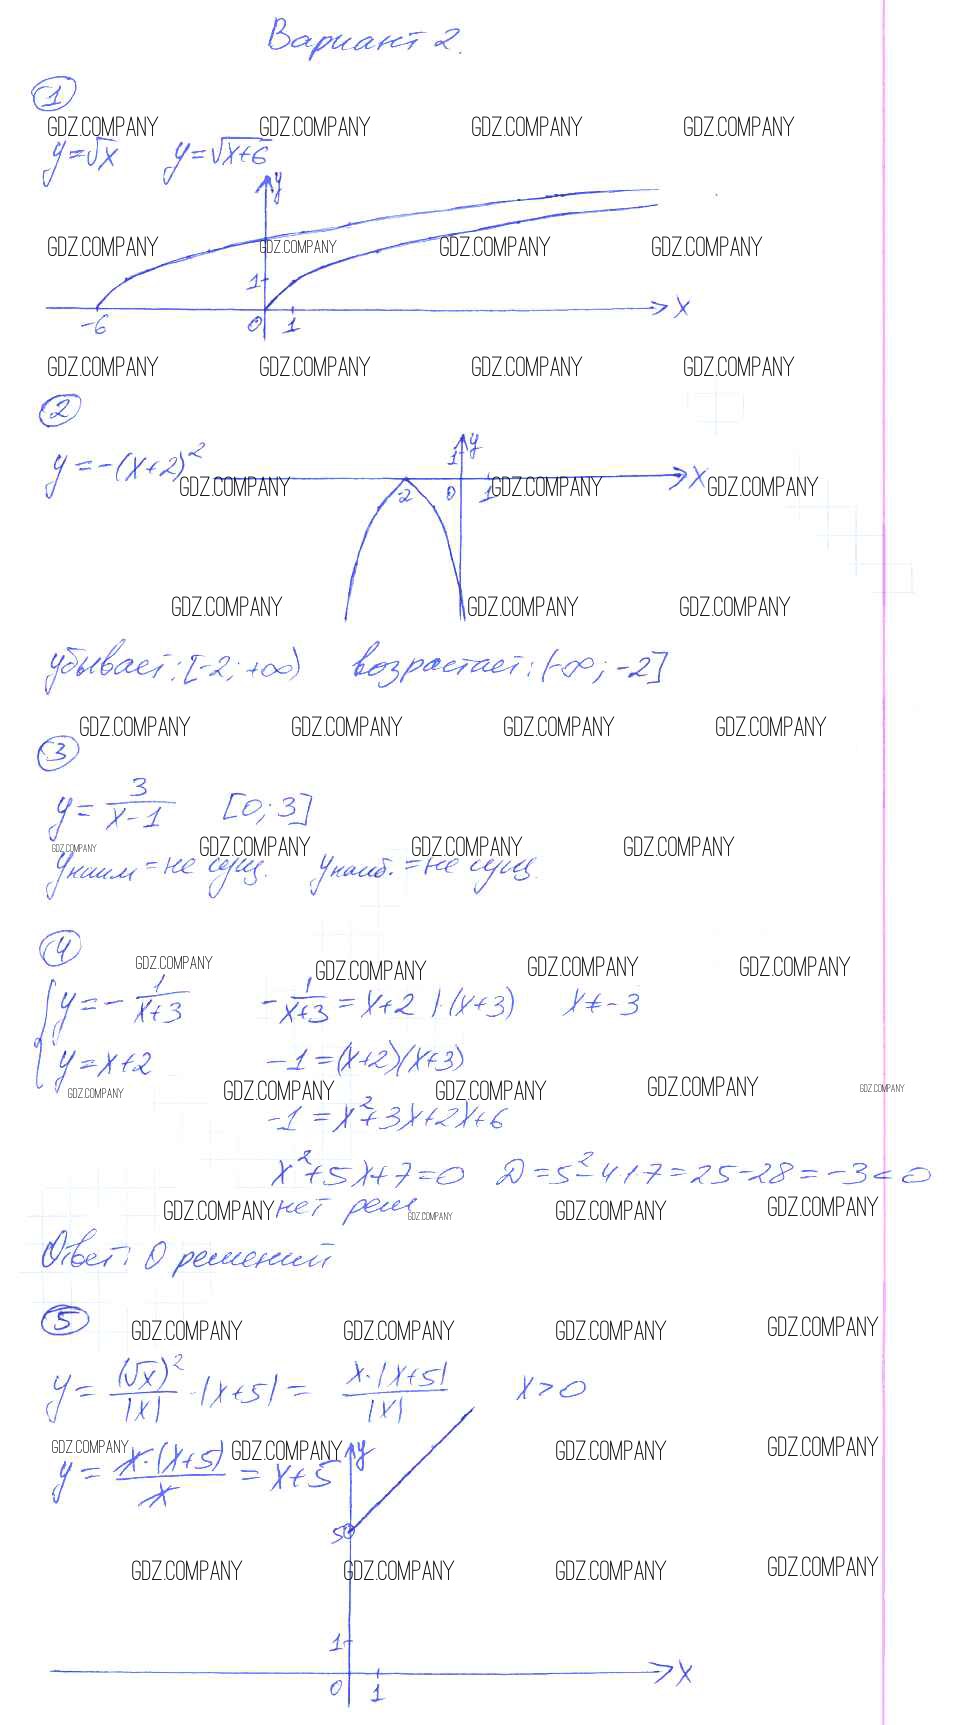 Вариант 2.
1
GDZ.COMPANY GDZ.COMPANY GDZ.COMPANY GDZ.COMPANY
y=√x y=√x+6
y
GDZ.COMPANY GDZ.COMPANY GDZ.COMPANY GDZ.COMPANY
1
-6 0 1 x
GDZ.COMPANY GDZ.COMPANY GDZ.COMPANY GDZ.COMPANY
2
y=-(x+2)² 1 y
GDZ.COMPANY -2 0 1 GDZ.COMPANY x GDZ.COMPANY
GDZ.COMPANY GDZ.COMPANY GDZ.COMPANY
убывает: [-2; +∞) возрастает: (-∞; -2]
GDZ.COMPANY GDZ.COMPANY GDZ.COMPANY GDZ.COMPANY
3
y = 3/(x-1) [0; 3]
GDZ.COMPANY GDZ.COMPANY GDZ.COMPANY GDZ.COMPANY
yнаим = не сущ. yнаиб. = не сущ.
4
GDZ.COMPANY GDZ.COMPANY GDZ.COMPANY GDZ.COMPANY
{ y = - 1/(x+3) - 1/(x+3) = x+2 |·(x+3) x ≠ -3
y = x+2 -1 = (x+2)(x+3)
GDZ.COMPANY GDZ.COMPANY GDZ.COMPANY GDZ.COMPANY GDZ.COMPANY
-1 = x²+3x+2x+6
x²+5x+7=0 D = 5²-4·1·7 = 25-28 = -3 < 0
GDZ.COMPANY нет реш GDZ.COMPANY GDZ.COMPANY GDZ.COMPANY
Ответ: 0 решений
5
GDZ.COMPANY GDZ.COMPANY GDZ.COMPANY GDZ.COMPANY
y = (√x)²/|x| · |x+5| = x·|x+5|/|x| x > 0
GDZ.COMPANY GDZ.COMPANY y GDZ.COMPANY GDZ.COMPANY
y = x·(x+5)/x = x+5
5
GDZ.COMPANY GDZ.COMPANY GDZ.COMPANY GDZ.COMPANY
1
0 1 x